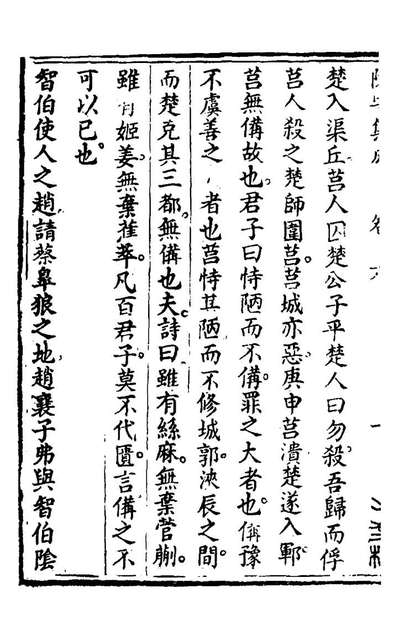 楚入渠丘莒人囚楚公子平楚人曰勿殺吾歸而俘
莒人殺之楚師圍莒莒城亦惡庚申莒潰楚遂入鄆
莒無備故也君子曰恃陋而不備罪之大者也備豫
不虞善之者也莒恃其陋而不修城郭浹辰之間
而楚克其三都無備也夫詩曰雖有絲麻無棄菅蒯
雖有姬姜無棄萑萃凡百君子莫不代匱言備之不
可以已也
智伯使人之趙請蔡皋狼之地趙襄子弗與智伯陰